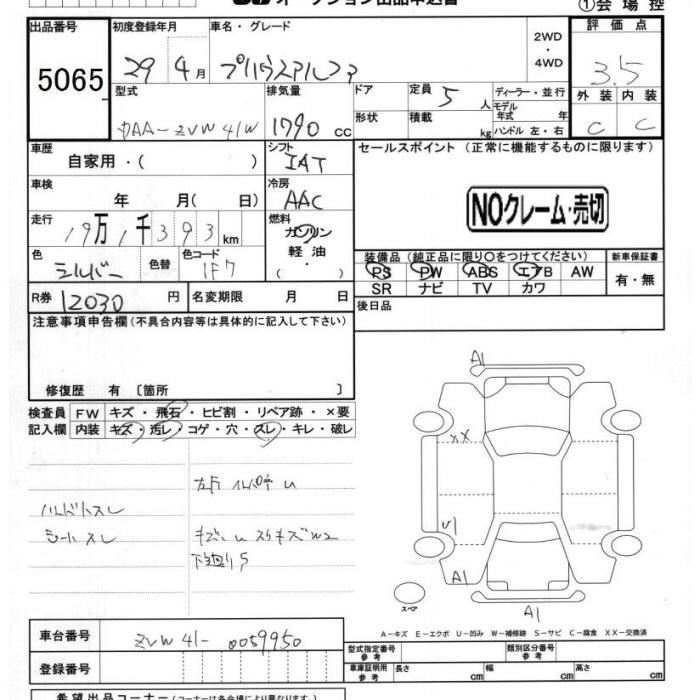 ①会 場 控
出品番号
5065
初度登録年月
29 4 月
車名・グレード
プリウスアルファ
2WD
・
4WD
評 価 点
3.5
外 装 内 装
C C
型式
DAA-ZVW41W
排気量
1790 cc
ドア
形状
定員 5 人
積載 kg
ディーラー・並 行
モデル
年式 年
ハンドル 左・右
車歴
自家用・( )
シフト
IAT
車検
年 月( 日)
冷房
AAC
走行
19万1千393 km
燃料
ガソリン
軽 油
・
( )
色
シルバー
色替
色コード
1F7
セールスポイント (正常に機能するものに限ります)
NOクレーム・売切
装備品 (純正品に限り○をつけてください)
PS PW ABS エアB AW
SR ナビ TV カワ
新車保証書
有・無
R券 12030 円
名変期限 月 日
後日品
注意事項申告欄(不具合内容等は具体的に記入して下さい)
修復歴 有 〔箇所 〕
検査員 FW キズ・飛石・ヒビ割・リペア跡・×要
記入欄 内装 キズ・汚レ・コゲ・穴・スレ・キレ・破レ
ハンドルスレ
シートスレ
下廻りS
A1
XX
U1
A1
スペア
A1
A-キズ E-エクボ U-凹み W-補修跡 S-サビ C-腐食 XX-交換済
車台番号
ZVW41-0059950
登録番号
型式指定番号
参 考
類別区分番号
参 考
車庫証明用
参 考
長さ cm 幅 cm 高さ cm